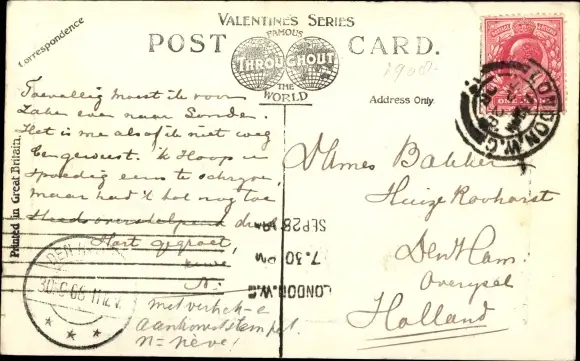 VALENTINE'S SERIES
FAMOUS
POST CARD.
THROUGHOUT
THE
WORLD
Correspondence
1908
Address Only
Printed in Great Britain.
Toevallig moest ik voor
zaken even naar Londen.
Het is me alsof ik niet weg
ben geweest. ik Hoop u
spoedig eens te
maar had 't tot nog toe
steeds druk
Hart gegroet,
uwe
N:
met
aankomststempel.
DEN
30
11-12 V
SEP 28
7.30 PM
LONDON.W.C
LONDON.W.C
Dames Bakker
Huize
Den Ham.
Overysel
Holland